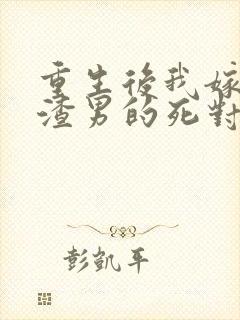 重生後我嫁
渣男的死對
彭凱平